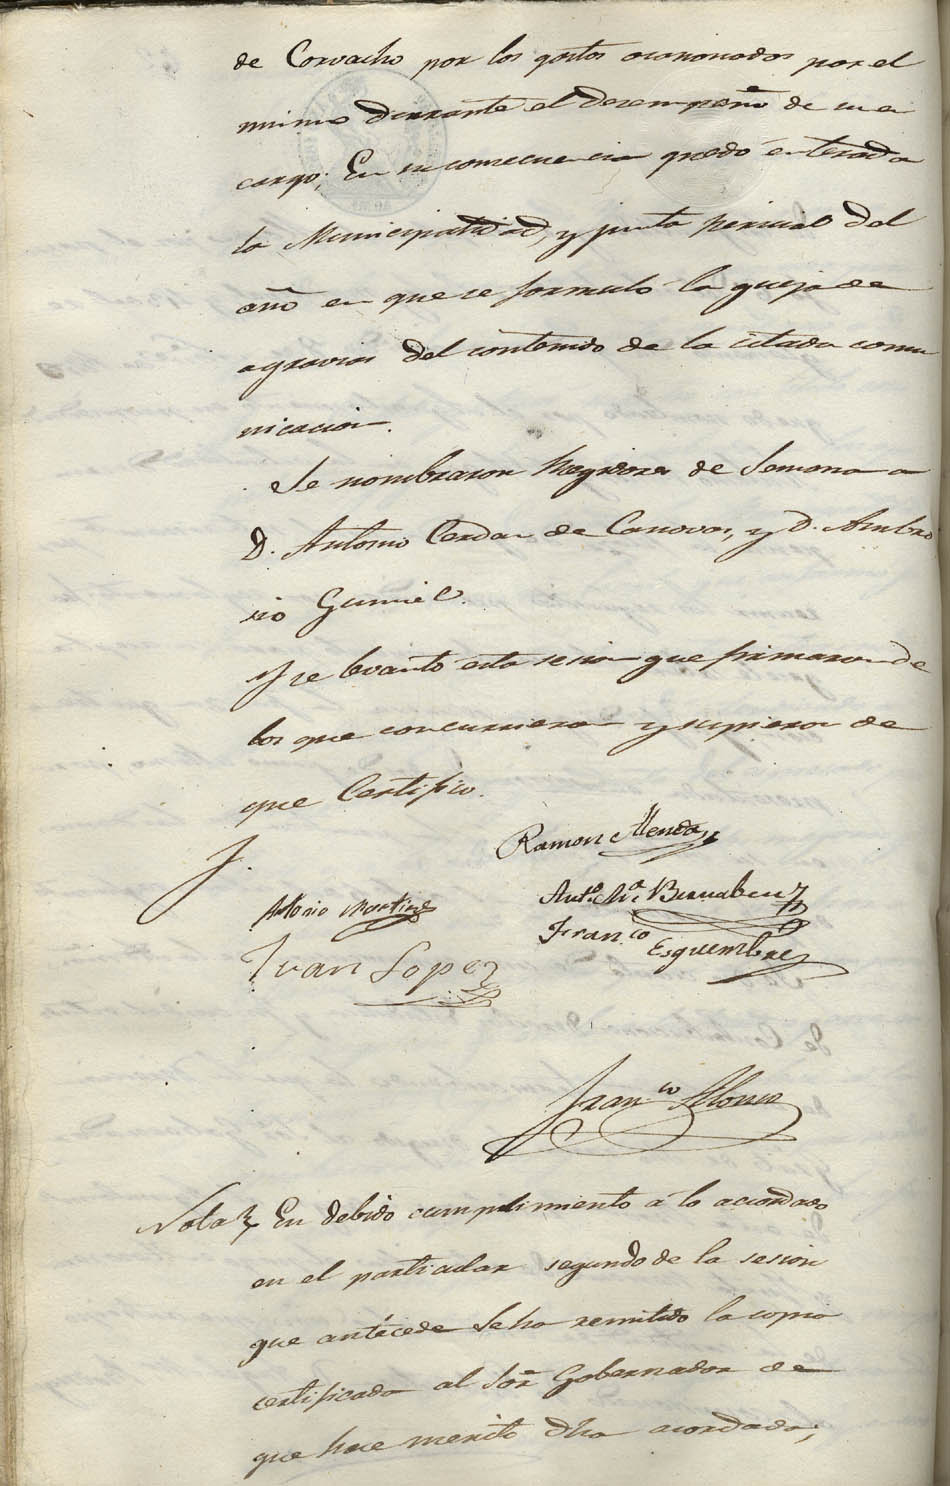 de Corvacho por los gastos ocacionados por el
mismo durante el desempeño de su
cargo; En su consecuencia quedó enterada
la Municipalidad, y junta pericial del
año en que se formulo la queja de
agravios del contenido de la citada comu
nicacion.
Se nombraron Regidores de Semana a
D. Antonio Cerdan de Canovas, y D. Ambro
sio Gumiel.
Y se levantó esta sesion que firmaron de
los que concurrieron y supieron de
que Certifico.
Ramon Menda
Antonio Martinez
Antº Mª Bernabeu
Juan Lopez
Franco Esquembre
Franco Alonso
Nota En debido cumplimiento á lo acordado
en el particular segundo de la sesion
que antecede Se ha remitido la copia
certificada al Sor Gobernador de
que hace merito dha acordada;